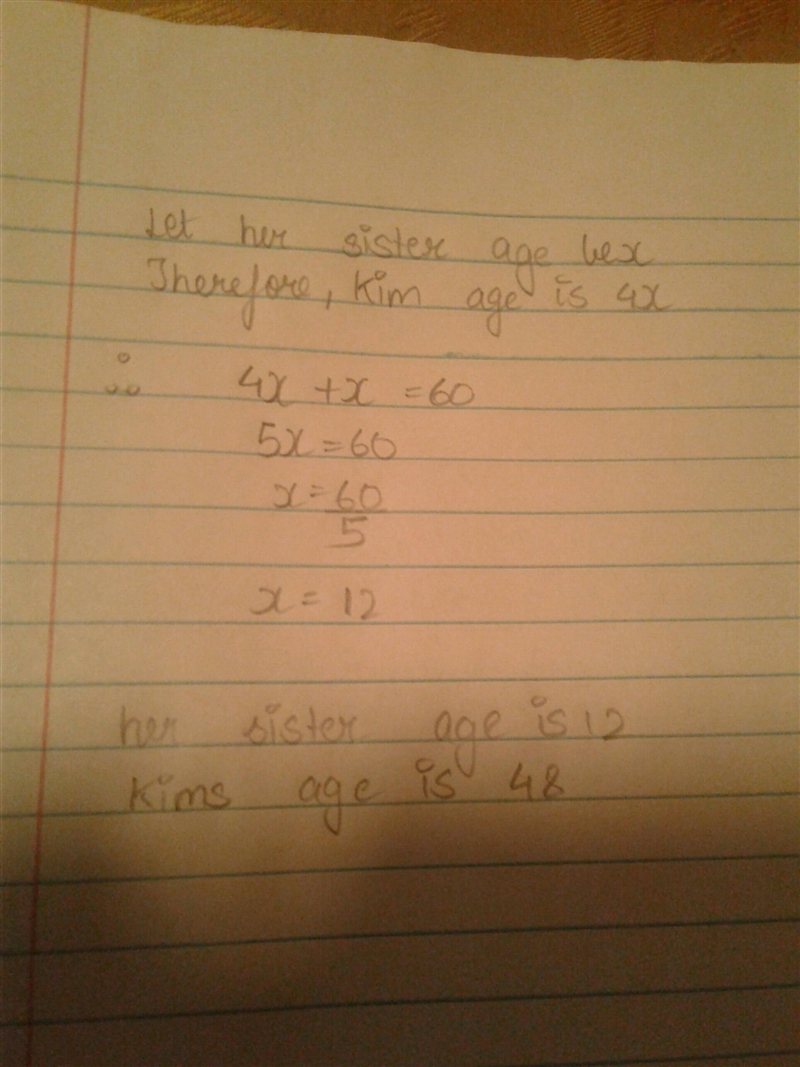 Let her sister age be x
Therefore, Kim age is 4x
∴ 4x + x = 60
5x = 60
x = 60
5
x = 12
her sister age is 12
Kims age is 48